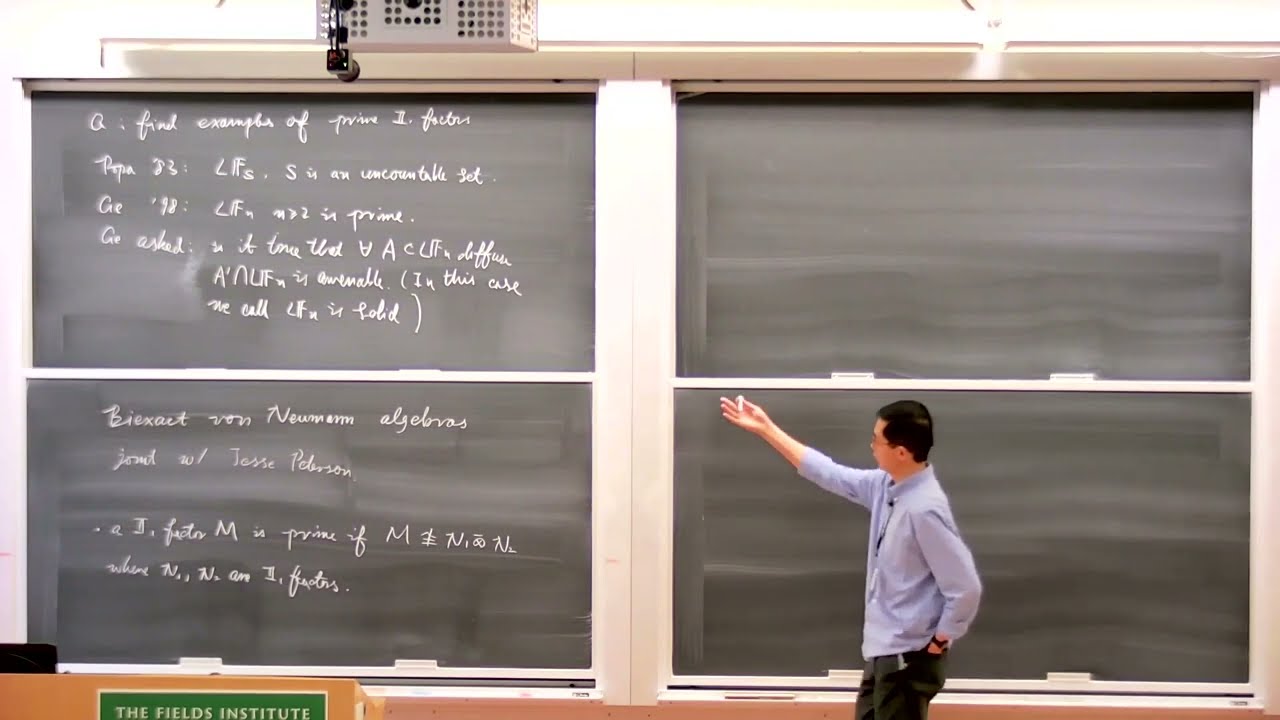 Q : find examples of prime II₁ factors
Popa '83: L𝔽s. S is an uncountable set.
Ge '98: L𝔽n n≥2 is prime.
Ge asked: is it true that ∀ A ⊂ L𝔽n diffuse
A'∩L𝔽n is amenable. (In this case
we call L𝔽n is solid)
Biexact von Neumann algebras
joint w/ Jesse Peterson.
· a II₁ factor M is prime if M ≇ N₁ ⊗̄ N₂
where N₁, N₂ are II₁ factors.
THE FIELDS INSTITUTE